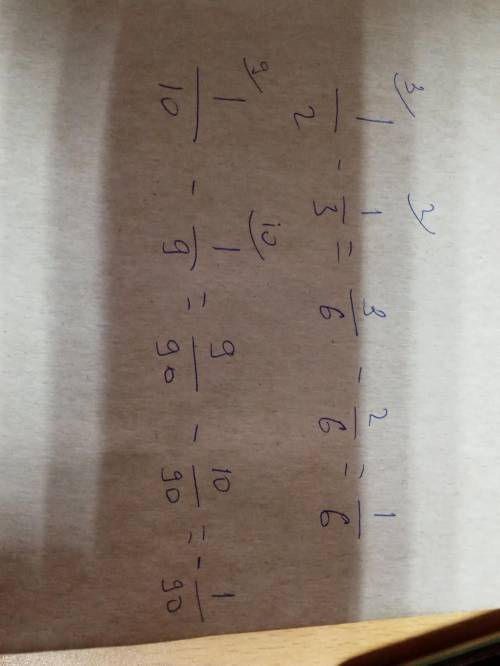 3/ 1/2 - 2/ 1/3 = 3/6 - 2/6 = 1/6
9/ 1/10 - 10/ 1/9 = 9/90 - 10/90 = - 1/90